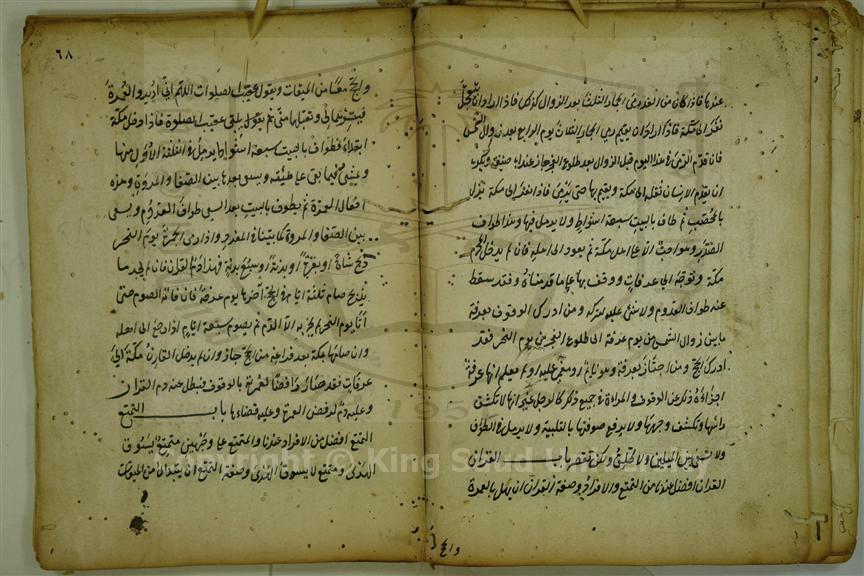 عندها فاذا كان من الغد رمى الجمار الثلث بعد الزوال كذلك فاذا اراد ان يتعجل
نفر الى مكة فاذا اراد ان يقيم رمى الجمار الثلث يوم الرابع بعد زوال الشمس
فان قدم الرمي في هذا اليوم قبل الزوال بعد طلوع الفجر جاز عند ابي حنيفة ويكره
ان يقدم الانسان ثقله الى مكة ويقيم بها حتى يرمي فاذا نفر الى مكة نزل
بالمحصب ثم طاف بالبيت سبعة اشواط ولا يرمل فيها وهذا طواف
الصدر وهو واجب الا على اهل مكة ثم يعود الى اهله فان لم يدخل المحرم
مكة وتوجه الى عرفات ووقف بها على ما قدمناه فقد سقط
عنه طواف القدوم ولا شئ عليه لتركه ومن ادرك الوقوف بعرفة
ما بين زوال الشمس من يوم عرفة الى طلوع الفجر من يوم النحر فقد
ادرك الحج ومن اجتاز بعرفة وهو نائم او مغمى عليه او لم يعلم انها عرفة
اجزاه ذلك عن الوقوف والمراة في جميع ذلك كالرجل غير انها لا تكشف
راسها وتكشف وجهها ولا ترفع صوتها بالتلبية ولا ترمل في الطواف
ولا تسعى بين الميلين ولا تحلق ولكن تقصر باب القران
القران افضل عندنا من التمتع والافراد وصفة القران ان يهل بالعمرة
والحج
٦٨
والحج معا من الميقات ويقول عقيب الصلوات اللهم اني اريد العمرة
فيسرهما لي وتقبلهما مني ثم يقول يلبي عقيب الصلوة فاذا دخل مكة
ابتداء فطواف بالبيت سبعة اشواط يرمل في الثلثة الاول منها
ويمشي فيما بقي على هيئته ويسعى بعدها بين الصفا والمروة وهذه
افعال العمرة ثم يطوف بالبيت بعد السعي طواف القدوم ويسعى
بين الصفا والمروة كما بيناه في المفرد واذا رمى الجمرة يوم النحر
ذبح شاة او بقرة او بدنة او سبع بدنة فهذا دم القران فان لم يجد ما
يذبح صام ثلثة ايام في الحج آخرها يوم عرفة فان فاته الصوم حتى
اتا يوم النحر لم يجز به الا الدم ثم يصوم سبعة ايام اذا رجع الى اهله
وان صامها بمكة بعد فراغه من الحج جاز وان لم يدخل القارن مكة الى
عرفات فقد صار رافضا لعمرته بالوقوف فبطل عنه دم القران
وعليه دم لرفض العمرة وعليه قضاءها باب التمتع
التمتع افضل من الافراد عندنا والمتمتع على وجهين متمتع يسوق
الهدى ومتمتع لا يسوق الهدى وصفة التمتع ان يبتدا من الميقات